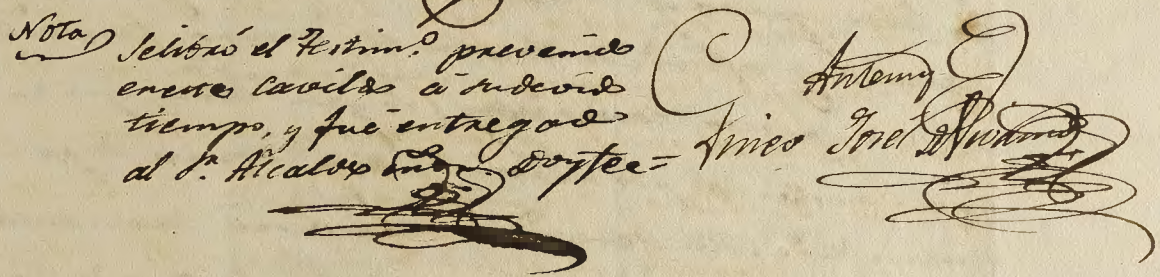 Nota
Selibró el Testim.º prevenido
eneste Cavildo á sudevido
tiempo, y fué entregado
al S.r Alcalde doyfee=
Antemy
José